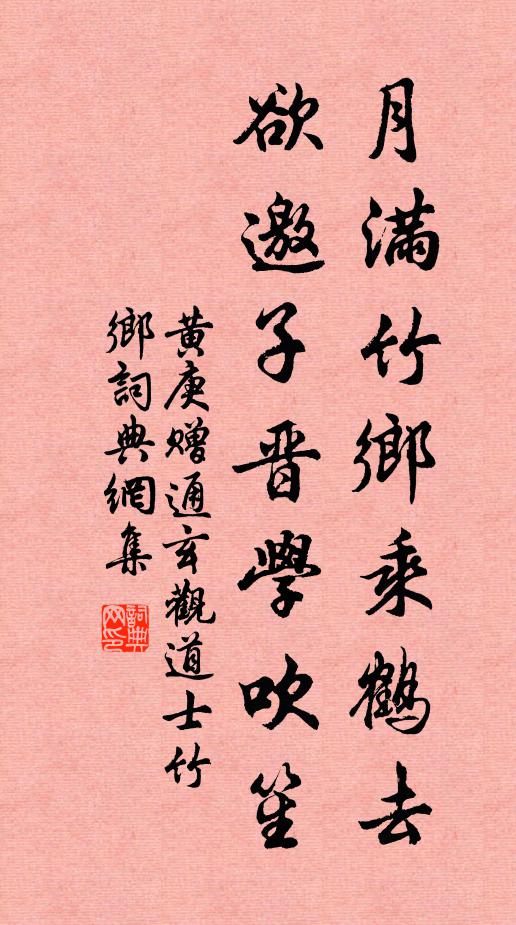 月滿竹鄉乘鶴去
欲邀子晋學吹笙
黃庚贈通玄觀道士竹
鄉詞典網集
詞典
网印